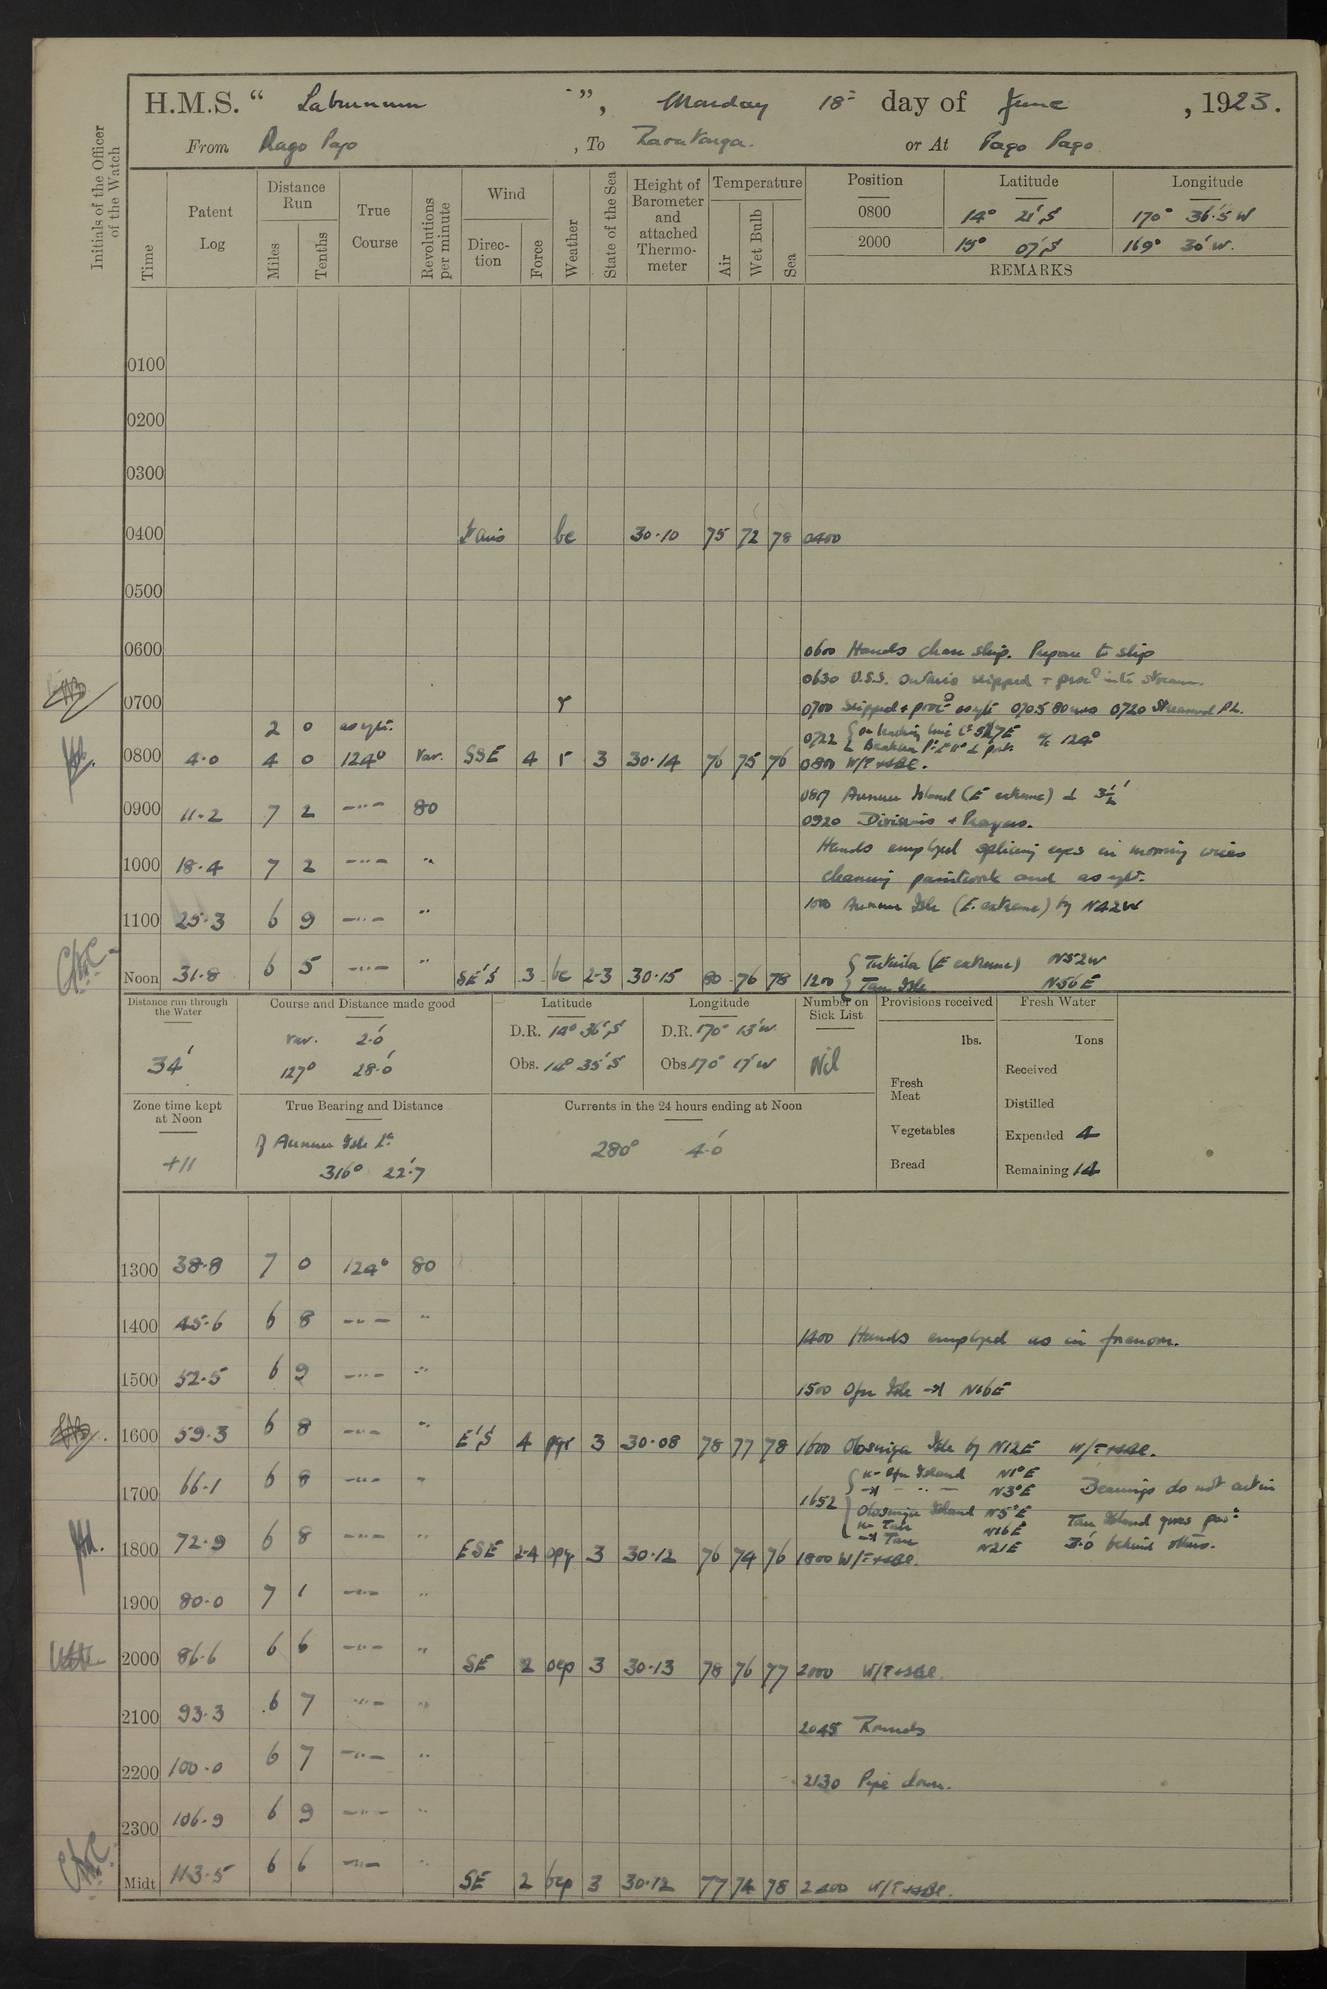 H.M.S. “ Laburnum ”, Monday 18th day of June , 1923.
From Pago Pago , To Rarotonga. or At Pago Pago
Initials of the Officer of the Watch
Time
Patent Log
Distance Run
Miles
Tenths
True Course
Revolutions per minute
Wind
Direction
Force
Weather
State of the Sea
Height of Barometer and attached Thermometer
Temperature
Air
Wet Bulb
Sea
Position Latitude Longitude
0800 14° 21' S 170° 36'.5 W
2000 15° 07' S 169° 30' W.
REMARKS
0100
0200
0300
0400 bc 30.10 75 72 78 0400
0500
0600 0600 Hands clean ship. Prepare to slip
0630 U.S.S. Ontario slipped + procd into stream.
0700 r 0700 Slipped + procd as reqte 0705 80 revs 0720 Streamed P.L.
2 0 as reqte.
0722 on leading line a/c 124°
0800 4.0 4 0 124° Var. SSE 4 r 3 30.14 76 75 76 0800 W/T + SBl.
0817 Aunuu Island (E extreme) ⊥ 3½'
0900 11.2 7 2 —"— 80
0920 Divisions + Prayers.
Hands employed splicing eyes in mooring wires
1000 18.4 7 2 —"— "
cleaning paintwork and as reqte.
1000 Aunuu Isle (E. extreme) by N42W
1100 25.3 6 9 —"— "
Noon 31.8 6 5 —"— " SE'S 3 bc 2-3 30.15 80 76 78 1200 { Tutuila (E extreme) N52W
Tau Isle N56E
Distance run through the Water
34'
Course and Distance made good
var. 2'.0
127° 28'.0
Latitude
D.R. 14° 36' S
Obs. 14° 35' S
Longitude
D.R. 170° 13' W
Obs 170° 17' W
Number on Sick List
Nil
Provisions received
lbs.
Fresh Meat
Vegetables
Bread
Fresh Water
Tons
Received
Distilled
Expended 4
Remaining 14
Zone time kept at Noon
+11
True Bearing and Distance
of Aunuu Isle Lt.
316° 22'.7
Currents in the 24 hours ending at Noon
280° 4'.0
1300 38.8 7 0 124° 80
1400 45.6 6 8 —"— "
1400 Hands employed as in forenoon.
1500 52.5 6 9 —"— "
1500 Ofu Isle →| N16E
1600 59.3 6 8 —"— " E'S 4 pqr 3 30.08 78 77 78 1600 Olosinga Isle by N12E W/T + SBl.
1652 { |← Ofu Island N1°E Bearings do not cut in
→| — " — N3°E
Olosinga Island N5°E Tau Island gives posn
|← Tau N16E 3'.0 behind others.
→| Tau N21E
1700 66.1 6 8 —"— "
1800 72.9 6 8 —"— " ESE 2-4 opq 3 30.12 76 74 76 1800 W/T + SBl.
1900 80.0 7 1 —"— "
2000 86.6 6 6 —"— " SE 2 ocp 3 30.13 78 76 77 2000 W/T + SBl.
2100 93.3 6 7 —"— "
2045 Rounds
2200 100.0 6 7 —"— "
2130 Pipe down.
2300 106.9 6 9 —"— "
Midt 113.5 6 6 —"— " SE 2 bcp 3 30.12 77 74 78 2400 W/T + SBl.